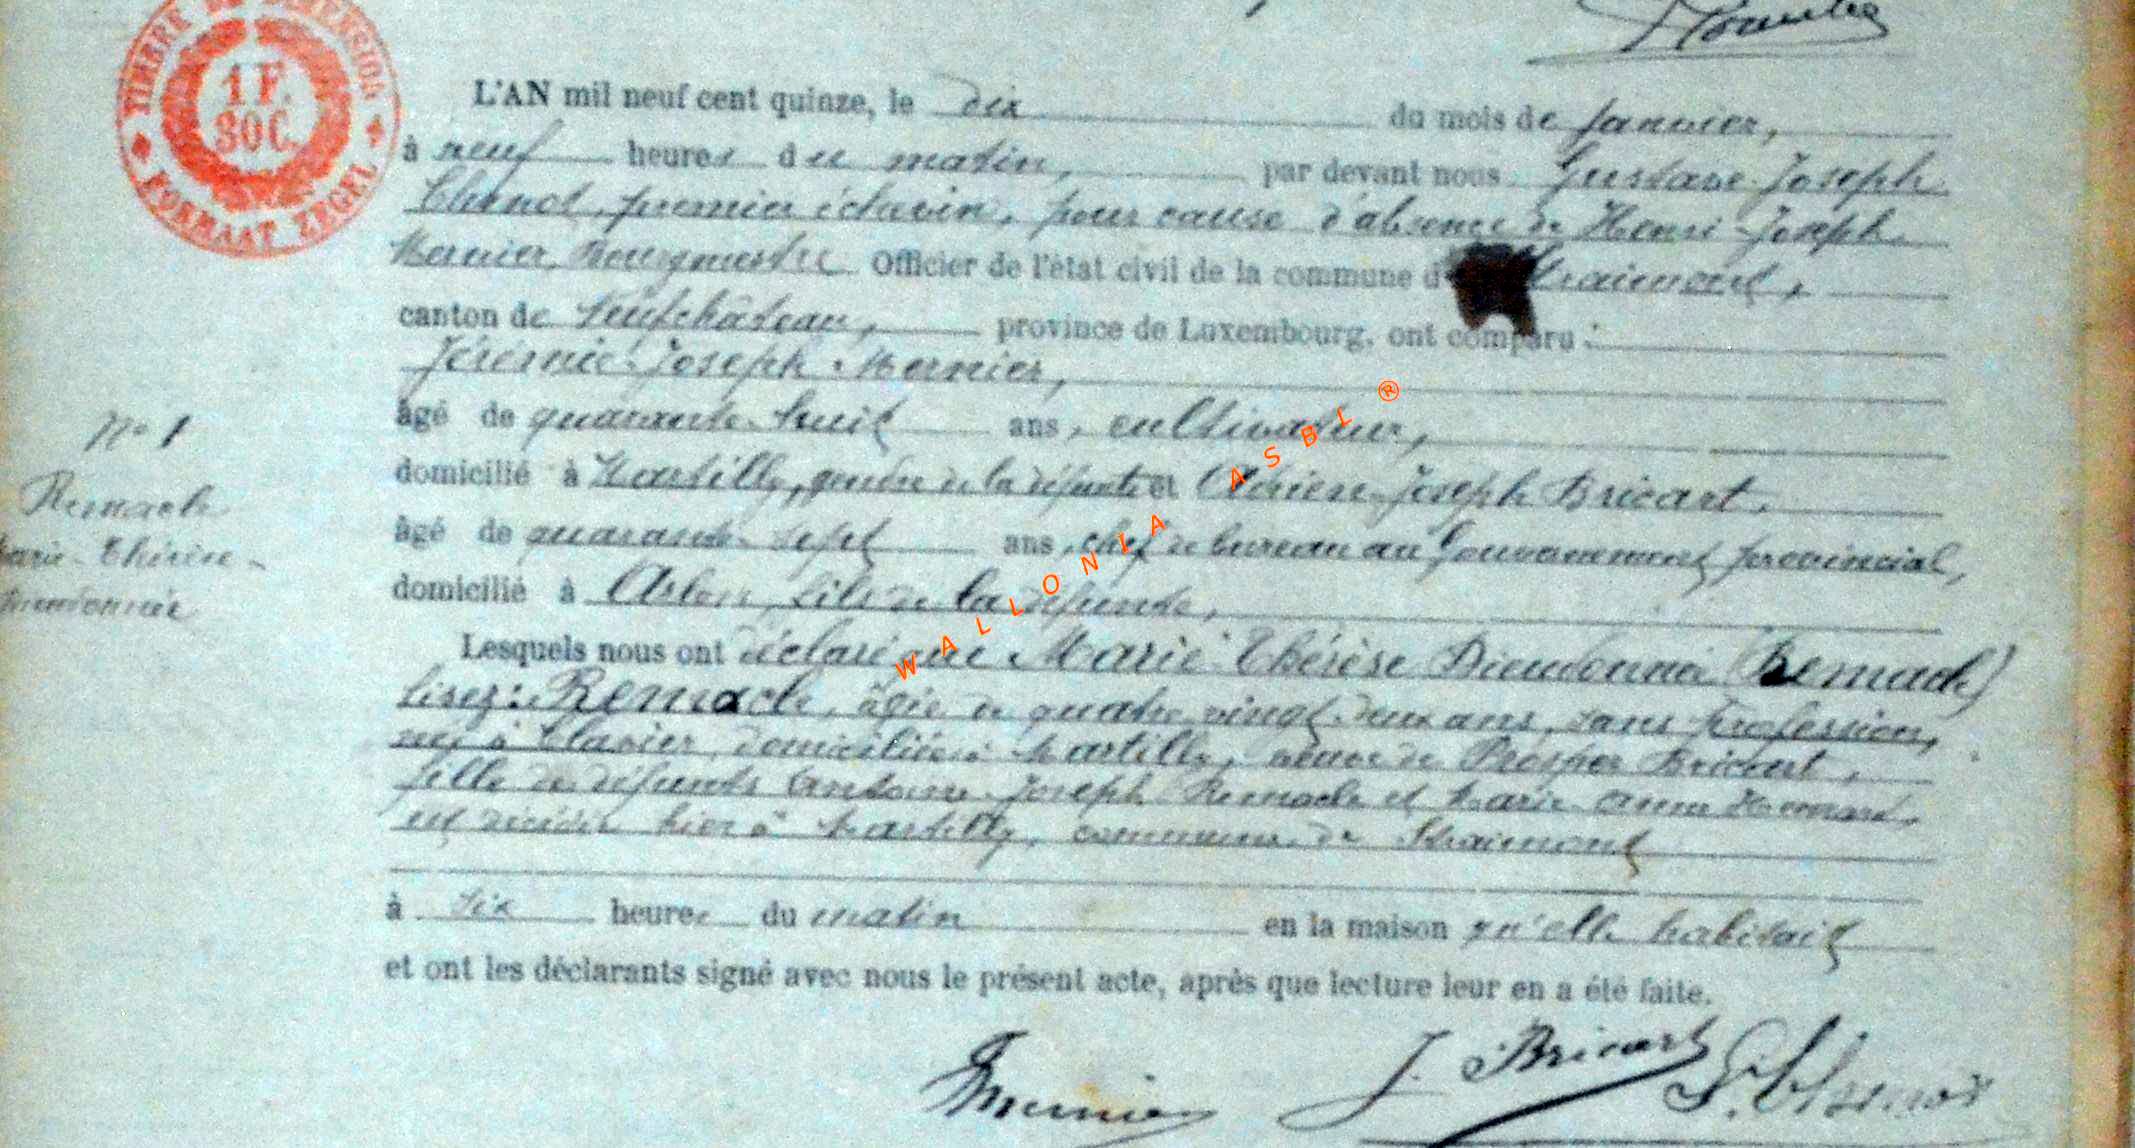 TIMBRE DE DIMENSION
1 F.
30 C.
FORMAAT ZEGEL
L'AN mil neuf cent quinze, le dix du mois de Janvier,
à neuf heures du matin, par devant nous Gustave-Joseph
premier échevin, pour cause d'absence de Henri-Joseph
Mernier, Bourgmestre Officier de l'état civil de la commune d Straimont,
canton de Neufchâteau, province de Luxembourg, ont comparu :
Jérémie-Joseph Mernier,
âgé de quarante-huit ans, cultivateur,
domicilié à Martilly, gendre de la défunte et Adrien-Joseph Bricart,
âgé de quarante-sept ans, chef de bureau au Gouvernement provincial,
domicilié à Arlon, fils de la défunte,
N° 1
Remacle
Marie-Thérèse-
Dieudonnée
Lesquels nous ont déclaré que Marie-Thérèse Dieudonnée (Remacle)
lisez: Remacle, âgée de quatre-vingt-deux ans, sans profession,
née à Clavier, domiciliée à Martilly, veuve de Prosper Bricart,
fille de défunts Antoine-Joseph Remacle et Marie-Anne
est décédée hier à Martilly, commune de Straimont
à six heures du matin en la maison qu'elle habitait
et ont les déclarants signé avec nous le présent acte, après que lecture leur en a été faite.
Mernier J. Bricart
WALLONIA ASBL ®